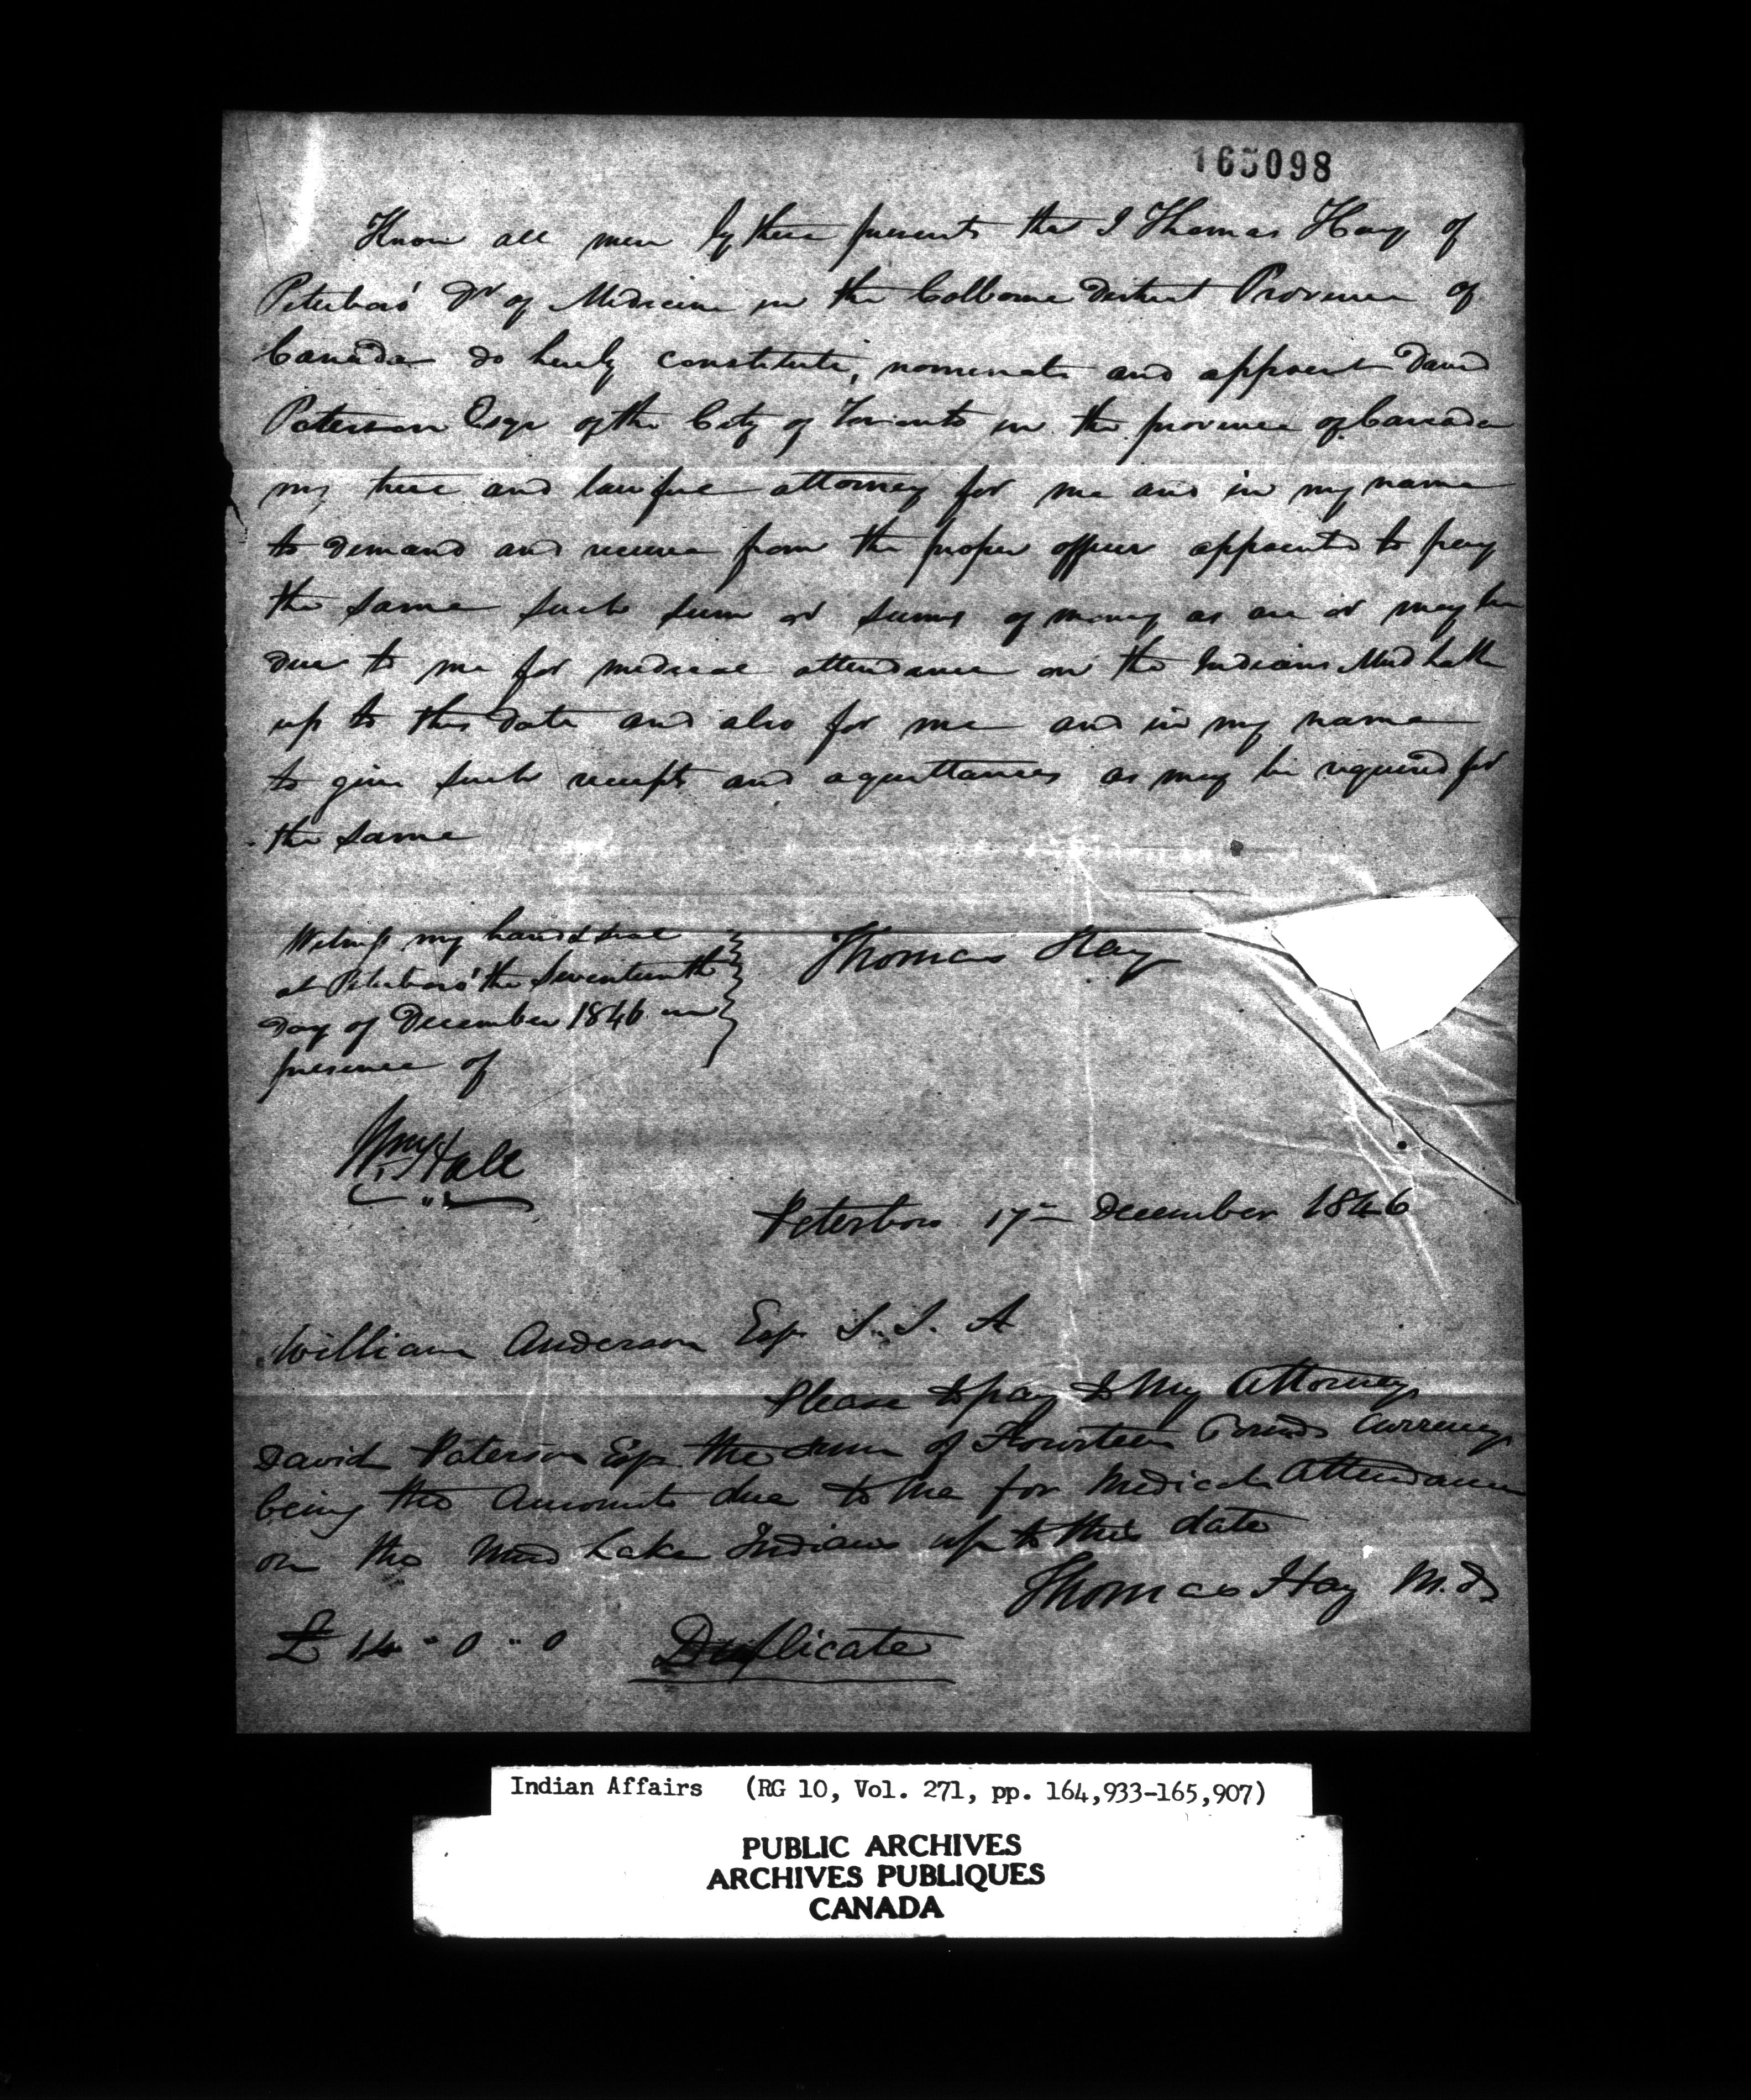 165098
Know all men by these presents that I Thomas Hay of
Peterboro' Dr of Medicine in the Colborne District Province of
Canada do herely constitute, nominate and appoint David
Paterson Esqr of the City of Toronto in the province of Canada
my true and lawful attorney for me and in my name
to demand and receive from the proper officer appointed to pay
the same such sum or sums of money as are or may be
due to me for medical attendance on the Indians Mud Lake
up to this date and also for me and in my name
to give such receipts and aquittances as may be required for
the same
Witness my hand & seal
at Peterboro' the Seventeenth
day of December 1846 in
presence of
Thomas Hay
Wm Hall
Peterboro 17th December 1846
William Anderson Esqr S. I. A
Please to pay to My Attorney
David Paterson Esqr the sum of Fourteen Pounds Currency
being the Amount due to me for Medical Attendance
on the Mud Lake Indians up to this date
Thomas Hay M.D
£ 14 " 0 " 0 Duplicate
Indian Affairs (RG 10, Vol. 271, pp. 164,933-165,907)
PUBLIC ARCHIVES
ARCHIVES PUBLIQUES
CANADA